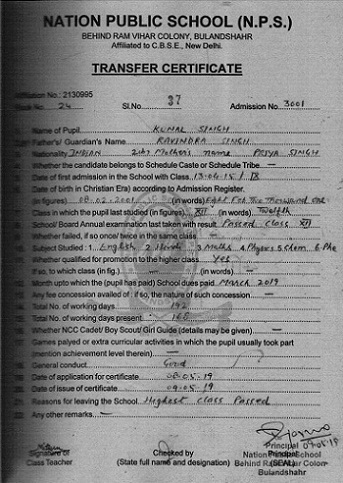 NATION PUBLIC SCHOOL (N.P.S.)
BEHIND RAM VIHAR COLONY, BULANDSHAHR
Affiliated to C.B.S.E., New Delhi.
TRANSFER CERTIFICATE
Affiliation No.: 2130995
Book No. 24 Sl.No. 37 Admission No. 3001
1. Name of Pupil KUNAL SINGH
Father's/ Guardian's Name RAVINDRA SINGH
3. Nationality INDIAN Mother's name PRIYA SINGH
Whether the candidate belongs to Schedule Caste or Schedule Tribe —
Date of first admission in the School with Class 13-04-15 / IX
Date of birth in Christian Era) according to Admission Register.
(In figures) 08-02-2001 (in words) Two thousand one
Class in which the pupil last studied (in figures) XII (in words) Twelfth
School/ Board Annual examination last taken with result Passed Class XII
Whether failed, if so once/ twice in the same class —
Subject Studied : 1. English 2. Hindi 3. Maths 4. Physics 5. Chem 6. Phe
Whether qualified for promotion to the higher class Yes
If so, to which class (in fig.) — (in words) —
Month upto which the (pupil has paid) School dues paid March 2019
Any fee concession availed of : if so, the nature of such concession —
Total No. of working days 192
Total No. of working days present 165
Whether NCC Cadet/ Boy Scout/ Girl Guide (details may be given) —
Games palyed or extra curricular activities in which the pupil usually took part
(mention achievement level therein) —
General conduct Good
Date of application for certificate 08-05-19
Date of issue of certificate 09-05-19
Reasons for leaving the School Highest Class Passed
Any other remarks —
Signature of Checked by Principal
Class Teacher (State full name and designation) (SEAL)
Nation Public School
Behind Ram Vihar Colon
Bulandshahr